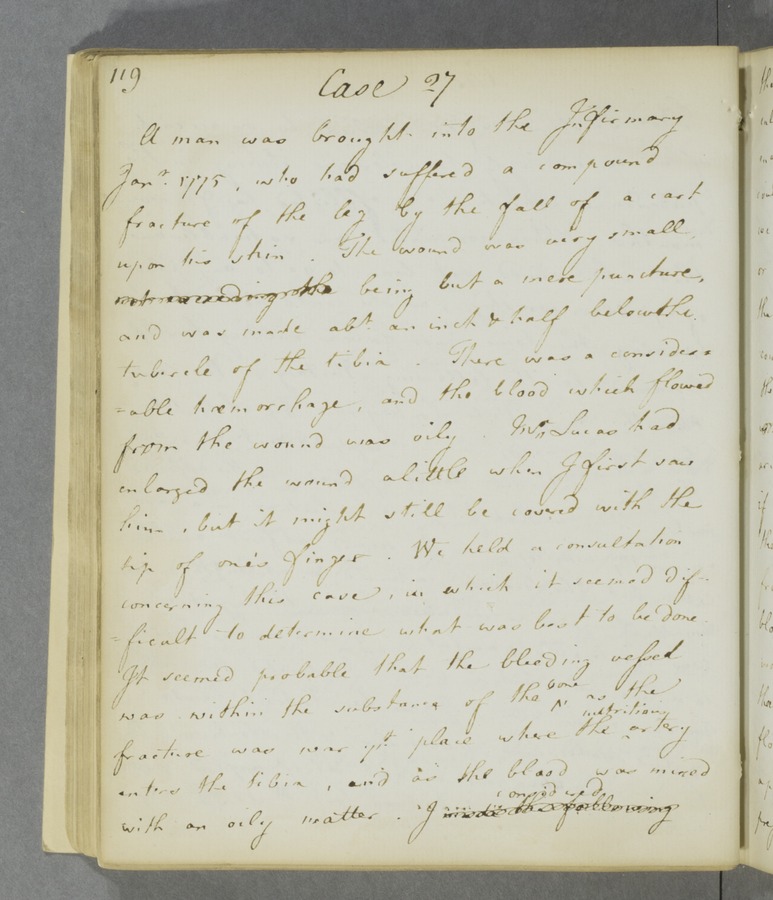 119
Case 27
A man was brought into the Infirmary
Janr. 1775, who had suffered a compound
fracture of the leg by the fall of a cart
upon his shin. The wound was very small,
being but a mere puncture,
and was made abt. an inch & half below the
tubercle of the tibia. There was a consider=
=able hæmorrhage, and the blood which flowed
from the wound was oily. Mr. Lucas had
enlarged the wound a little when I first saw
him, but it might still be covered with the
tip of one's finger. We held a consultation
concerning this case, in which it seemed dif=
=ficult to determine what was best to be done.
It seemed probable that the bleeding vessel
was within the substance of the bone as the
fracture was near yt. place where the nutritious artery
enters the tibia, and as the blood was mixed
with an oily matter. I considered
made the following